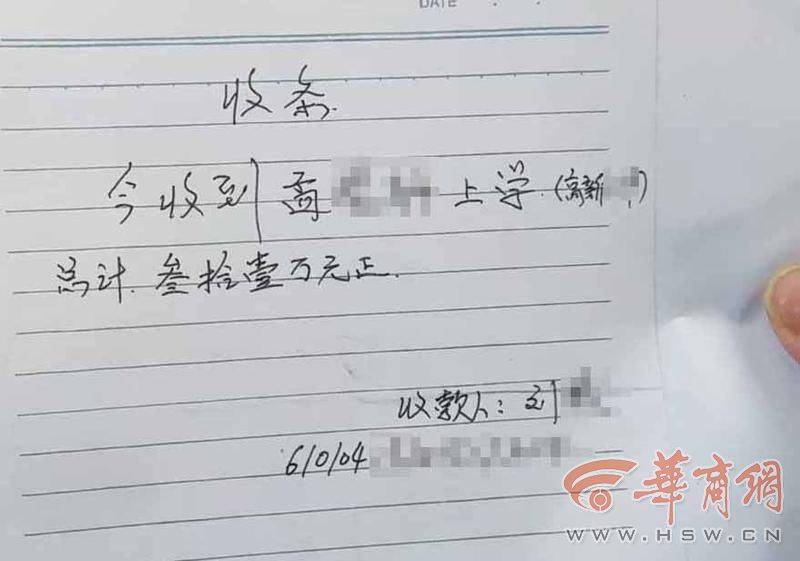 DATE
收条
今收到商 上学.(高新 )
总计.叁拾壹万元正.
收款人：刘
610104
華商網
WWW.HSW.CN